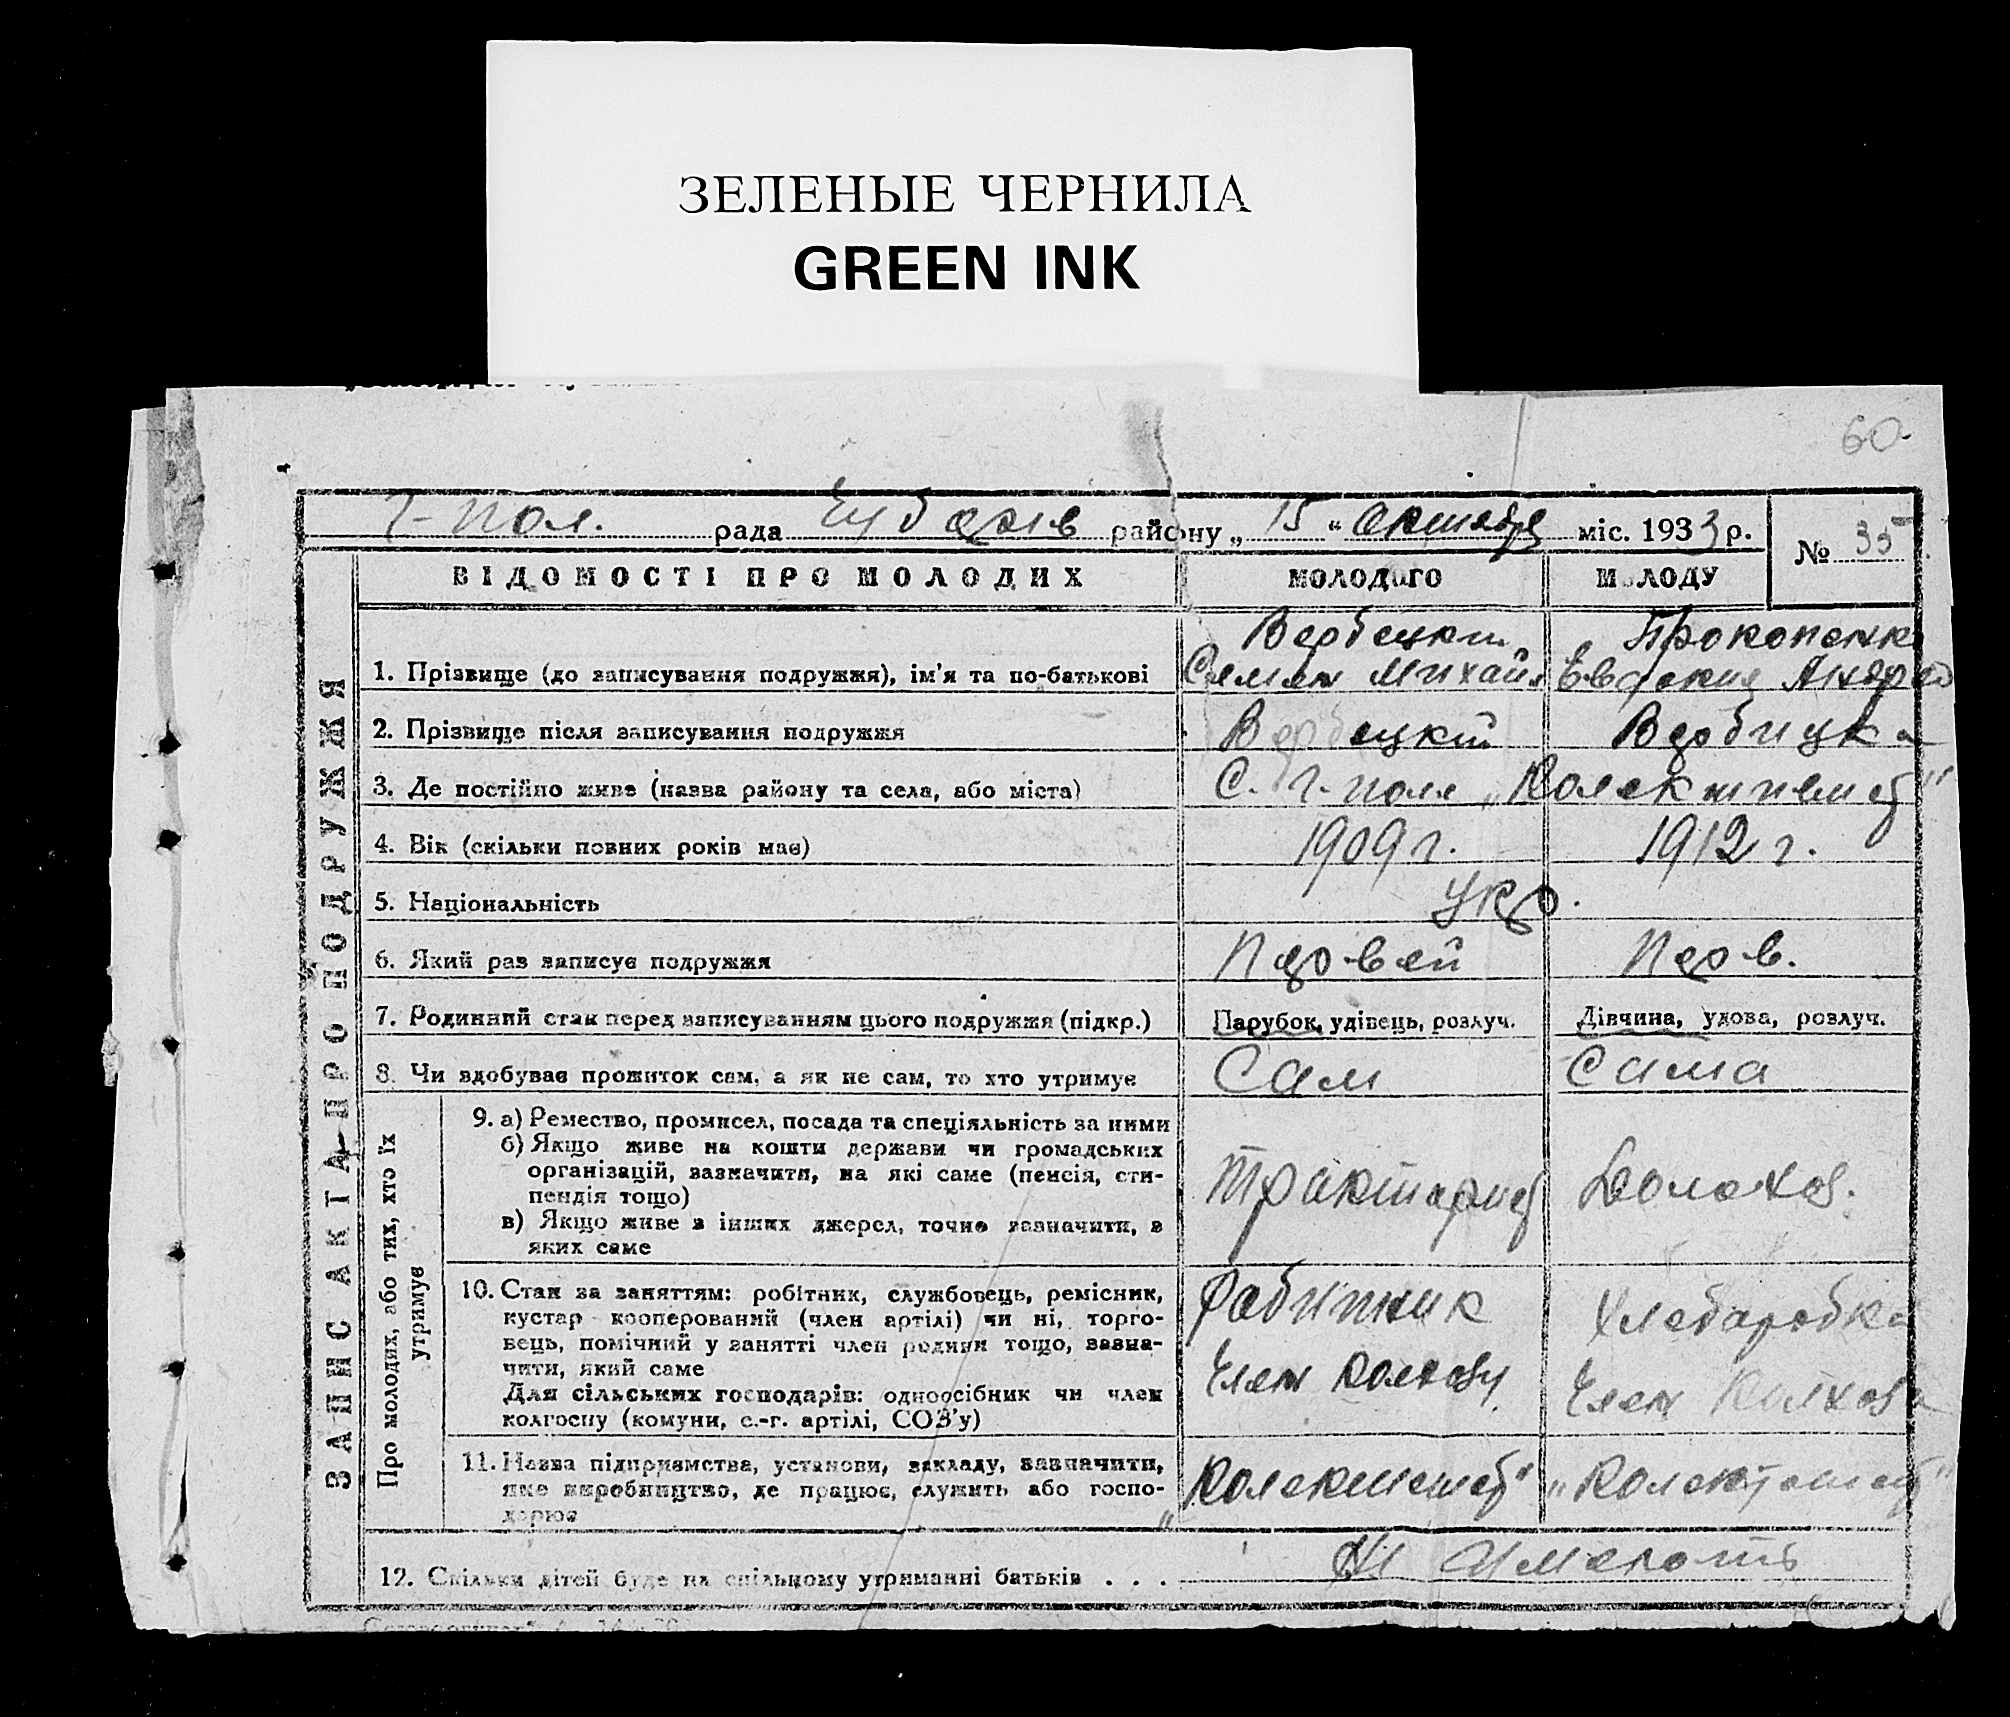 ЗЕЛЕНЫЕ ЧЕРНИЛА
GREEN INK
60
Г-пол. рада району „ 15 “ октября міс. 1933 р.
№ 35
ЗАПИС АКТА ПРО ПОДРУЖЖЯ
ВІДОМОСТІ ПРО МОЛОДИХ МОЛОДОГО МОЛОДУ
Вербецкий Прокопенко
1. Прізвище (до записування подружжя), ім'я та по-батькові Семен Михайл Евдокия Андре
2. Прізвище після записування подружжя Вербецкий Вербицка
3. Де постійно живе (назва району та села, або міста) С. Г. поле „Колективист"
4. Вік (скільки повних років має) 1909 г. 1912 г.
5. Національність Укр.
6. Який раз записує подружжя Первей Перв.
7. Родинний стан перед записуванням цього подружжя (підкр.) Парубок, удівець, розлуч. Дівчина, удова, розлуч.
8. Чи здобуває прожиток сам, а як не сам, то хто утримує Сам Сама
Про молодих, або тих, хто їх
утримує
9. а) Ремество, промисел, посада та спеціяльність за ними
б) Якщо живе на кошти держави чи громадських
організацій, зазначити, на які саме (пенсія, сти-
пендія тощо)
Тракторист
в) Якщо живе з інших джерел, точно зазначити, з
яких саме
10. Стан за заняттям: робітник, службовець, ремісник,
кустар кооперований (член артілі) чи ні, торго-
вець, помічний у занятті член родини тощо, зазна-
чити, який саме
Рабитник Хлебаробка
Для сільських господарів: одноосібник чи член
колгоспу (комуни, с.-г. артілі, СОЗ'у)
Член Колхозу Член Колхоза
11. Назва підприємства, установи, закладу, зазначити,
яке виробництво, де працює, служить або госпо-
дарює
„Колективист" „Колективист"
12. Скільки дітей буде на спільному утриманні батьків . . . Ни имеють